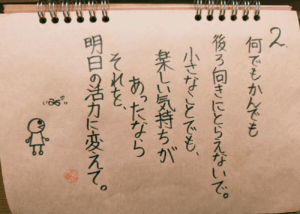 2.
何でもかんでも
後ろ向きにとらえないで。
小さなことでも、
楽しい気持ちが
あったなら
それを、
明日の活力に変えて。